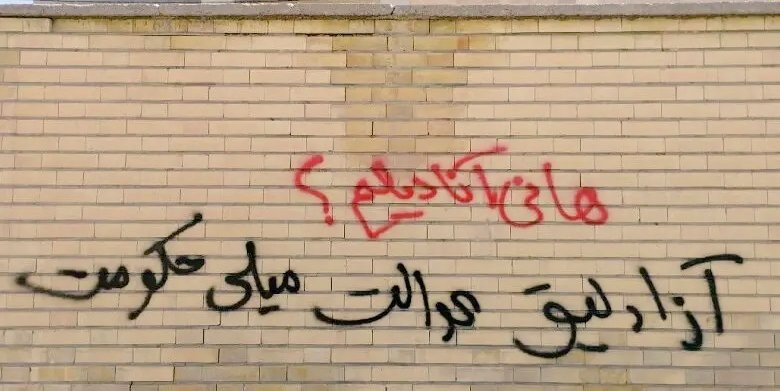 هانی آنا دیلیم؟
آزادلیق عدالت میلی حکومت